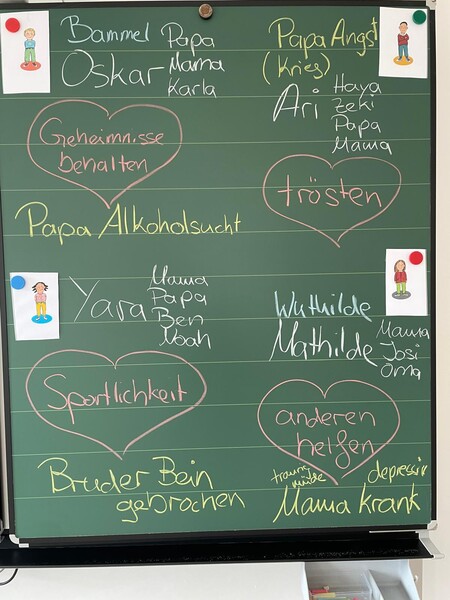 Bammel
Oskar
Papa
Mama
Karla
Geheimnisse
behalten
Papa Alkoholsucht
Papa Angst
(Krieg)
Ari
Haya
Zeki
Papa
Mama
trösten
Yara
Mama
Papa
Ben
Noah
Sportlichkeit
Bruder Bein
gebrochen
Wuthilde
Mathilde
Mama
Josi
Oma
anderen
helfen
traurig
müde
depressiv
Mama krank